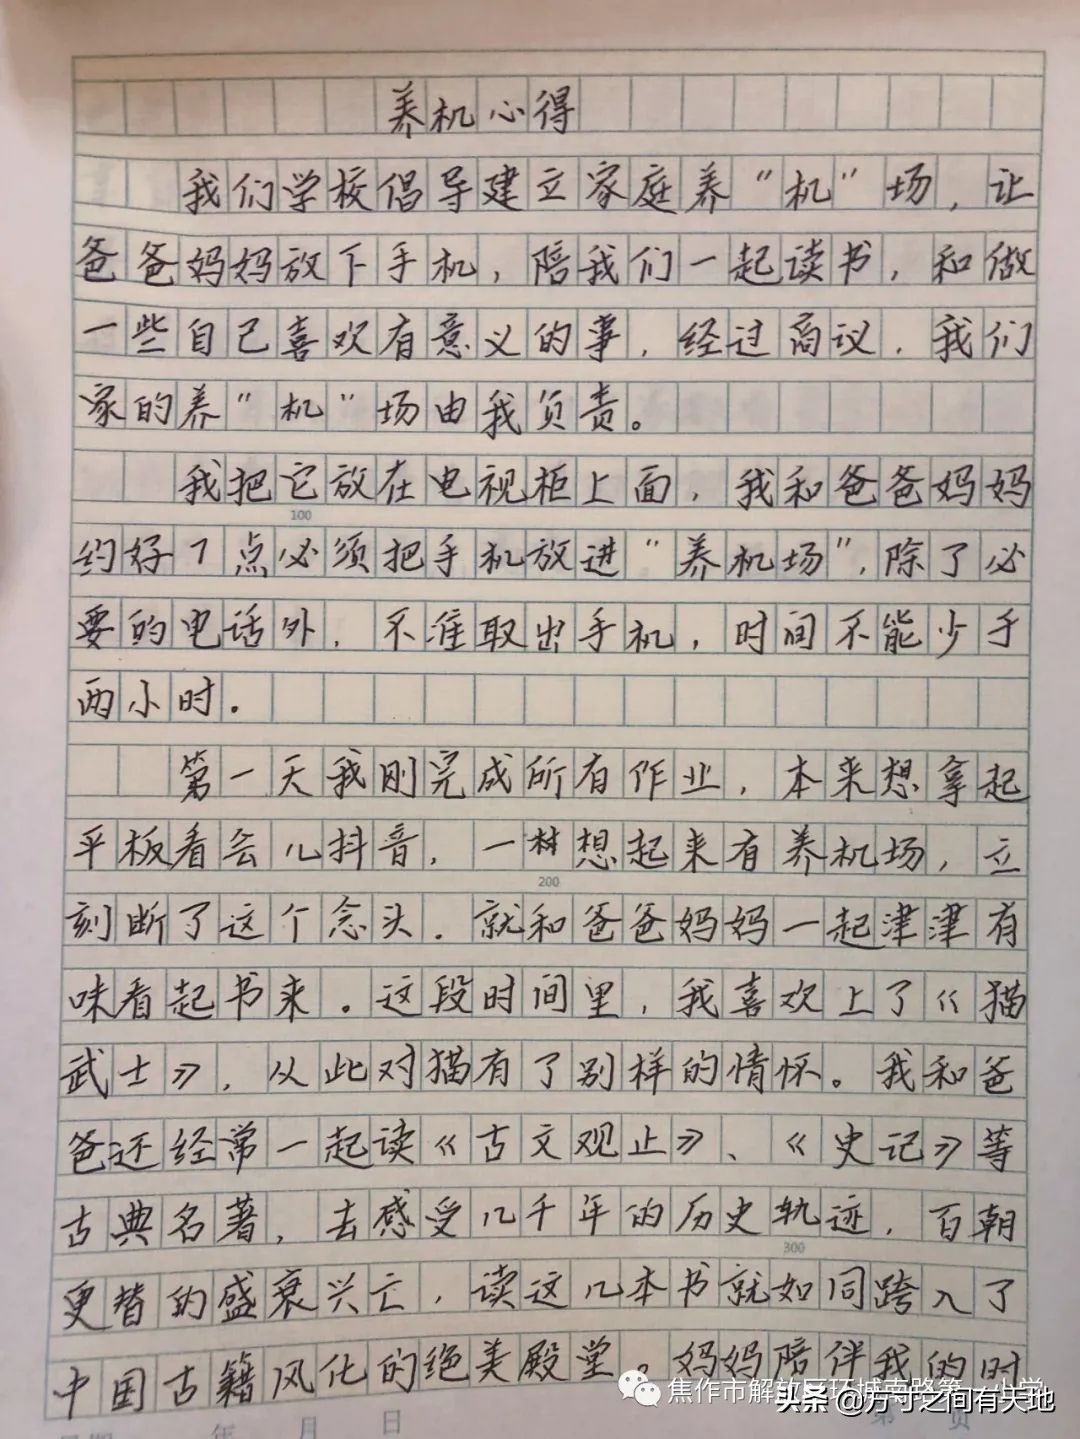 养机心得
我们学校倡导建立家庭养“机”场，让
爸爸妈妈放下手机，陪我们一起读书，和做
一些自己喜欢有意义的事，经过商议，我们
家的养“机”场由我负责。
我把它放在电视柜上面，我和爸爸妈妈
100
约好7点必须把手机放进“养机场”，除了必
要的电话外，不准取出手机，时间不能少于
两小时．
第一天我刚完成所有作业，本来想拿起
平板看会儿抖音，一想起来有养机场，立
200
刻断了这个念头．就和爸爸妈妈一起津津有
味看起书来．这段时间里，我喜欢上了《猫
武士》，从此对猫有了别样的情怀。我和爸
爸还经常一起读《古文观止》、《史记》等
古典名著，去感受几千年的历史轨迹，百朝
300
更替的盛衰兴亡，读这几本书就如同跨入了
中国古籍风化的绝美殿堂。妈妈陪伴我的时
焦作市解放区环城南路第一小学
头条@方寸之间有天地
年 月 日 第 页